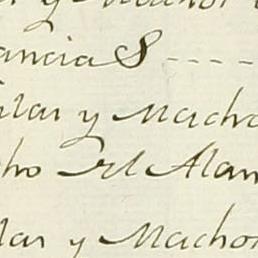 y Machor
ancia S ----
ilar y Macho
cho Del Alam
lar y Machor